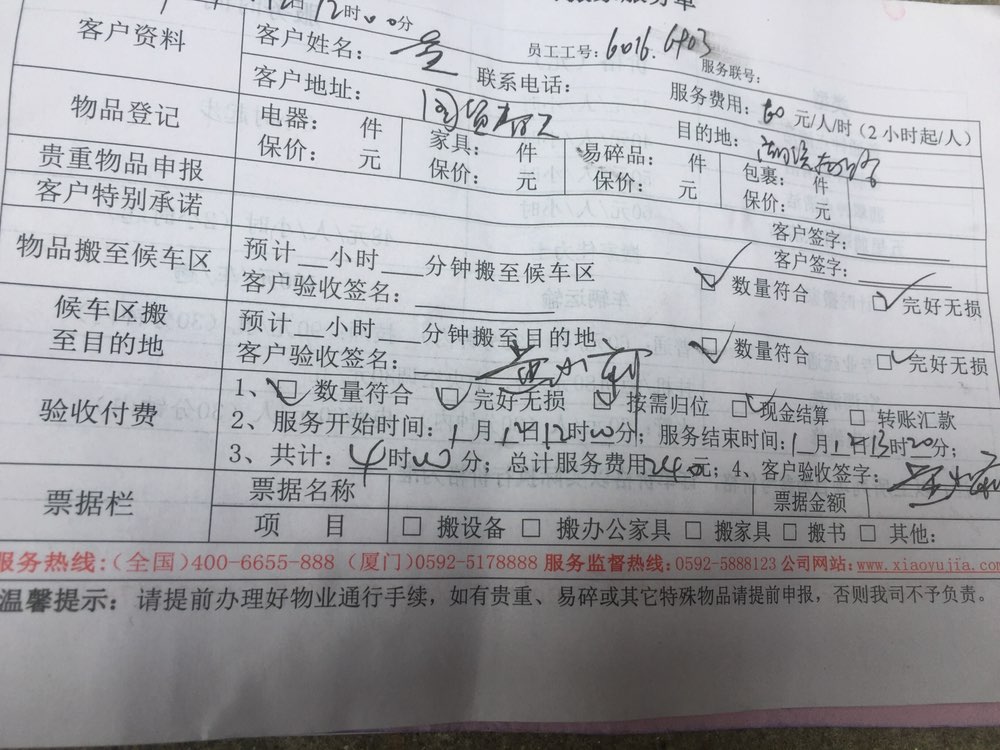 12日12时00分
客户资料
客户姓名：
员工工号：6016.6903
服务联号：
客户地址：
联系电话：
服务费用：60元/人/时（2小时起/人）
目的地：
物品登记
电器： 件 家具： 件 易碎品： 件 包裹： 件
保价： 元 保价： 元 保价： 元 保价： 元
贵重物品申报
客户签字：
客户特别承诺
客户签字：
物品搬至候车区
预计___小时___分钟搬至候车区
客户验收签名：
☑数量符合 ☑完好无损
候车区搬至目的地
预计___小时___分钟搬至目的地
客户验收签名：
☑数量符合 ☑完好无损
验收付费
1、☑数量符合 ☑完好无损 ☑按需归位 ☑现金结算 □转账汇款
2、服务开始时间：1月12日12时00分；服务结束时间：1月12日13时20分；
3、共计：4时00分；总计服务费用240元；4、客户验收签字：
票据栏
票据名称 票据金额
项 目 □搬设备 □搬办公家具 □搬家具 □搬书 □其他：
服务热线：（全国）400-6655-888（厦门）0592-5178888 服务监督热线：0592-5888123 公司网站：www.xiaoyujia.com
温馨提示：请提前办理好物业通行手续，如有贵重、易碎或其它特殊物品请提前申报，否则我司不予负责。